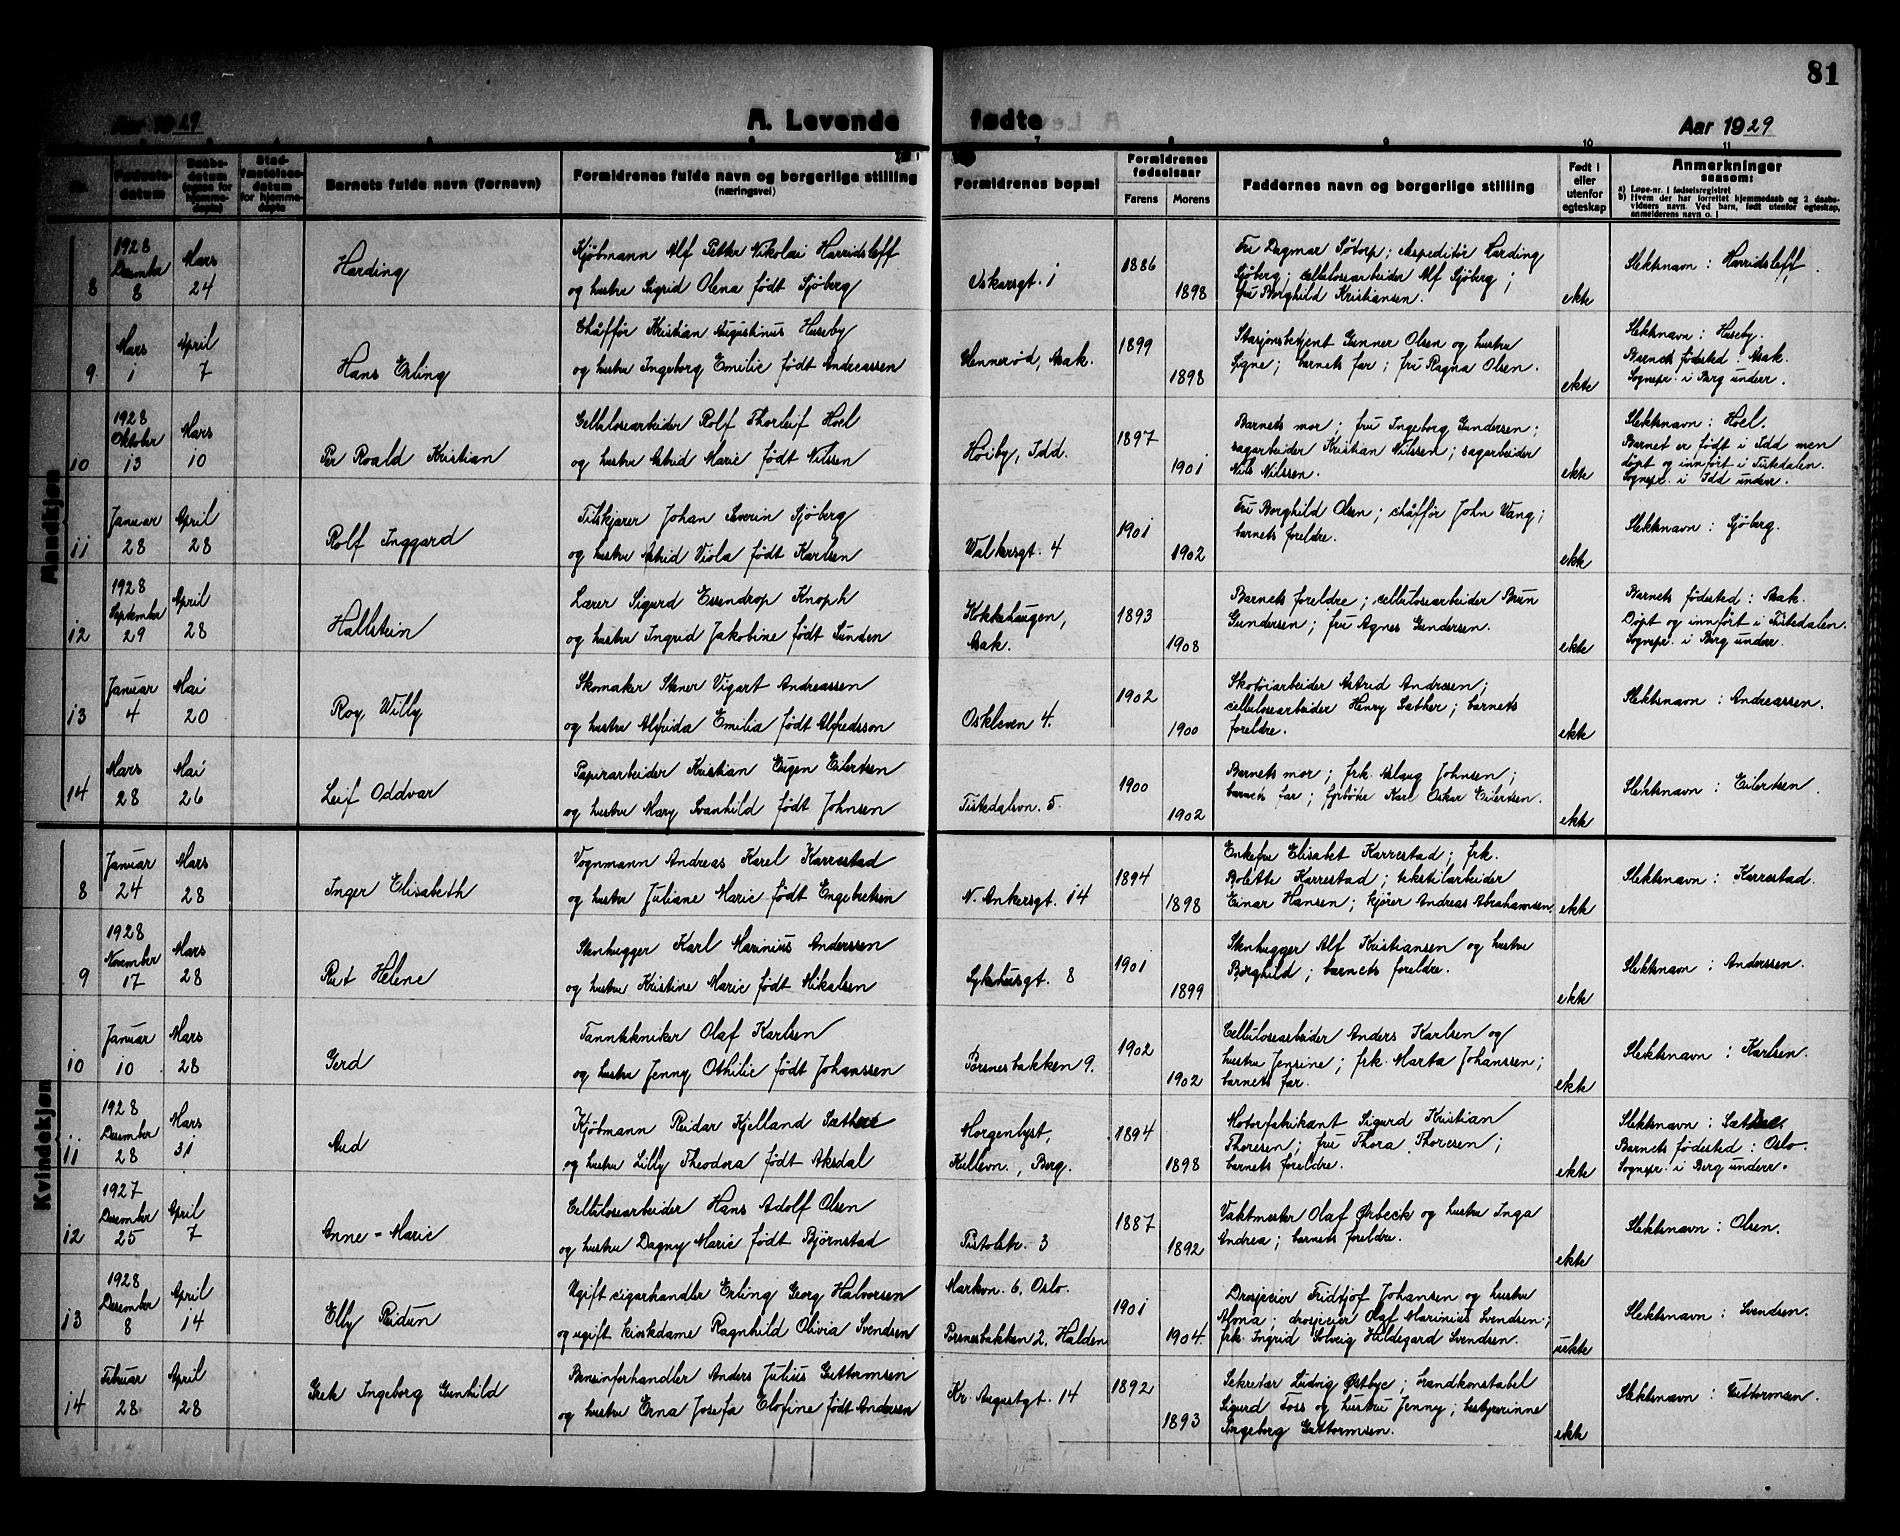 81
Aar 1929
A. Levende fødte
Aar 1929
Fødselsdatum
Daabsdatum (ogsaa for hjemmedøpte)
Stadfæstelsesdatum for hjemmedøpte
Barnets fulde navn (fornavn)
Forældrenes fulde navn og borgerlige stilling (næringsvei)
Forældrenes bopæl
Forældrenes fødselsaar
Farens
Morens
Faddernes navn og borgerlige stilling
Født i eller utenfor egteskap
Anmerkninger
saasom:
a) Løpe-nr. i fødselsregistret
b) Hvem der har forrettet hjemmedaab og 2 daabsvidners navn. Ved barn, født utenfor egteskap, anmelderens navn o. l
Mandkjøn
8
1928 Desember 8
Mars 24
Harding
Kjøbmann Alf Petter Nikolai Harridsleff
og hustru Sigrid Olena født Sjøberg
Oskarsgt. 1
1886
1898
Fru Dagmar Søtorp; ekspeditør Harding
Sjøberg; cellulosearbeider Alf Sjøberg;
fru Borghild Kristiansen.
ekte
Slektsnavn: Harridsleff.
9
Mars 1
April 7
Hans Erling
Chåffør Kristian Augustinus Huseby
og hustru Ingeborg Emilie født Andreassen
Glennerød, Asak.
1899
1898
Stasjonsbetjent Gunner Olsen og hustru
Signe; barnets far; fru Ragna Olsen.
ekte
Slektsnavn: Huseby.
Barnets fødested: Asak.
Sognepr. i Berg underr.
10
1928 Oktober 13
Mars 10
Per Roald Kristian
Cellulosearbeider Rolf Thorleif Hoel
og hustru Astrid Marie født Nilsen
Høiby, Idd.
1897
1901
Barnets mor; fru Ingeborg Gundersen;
sagarbeider Kristian Nilssen; sagarbeider
Nils Nilssen.
ekte
Slektsnavn: Hoel.
Barnet er født i Idd men
døpt og innført i Tistedalen.
Sognepr. i Idd underr.
11
Januar 28
April 28
Rolf Inggard
Filskjærer Johan Severin Sjøberg
og hustru Astrid Viola født Karlsen
Walkersgt. 4
1901
1902
Fru Borghild Olsen; chåffør John Vang;
barnets foreldre.
ekte
Slektsnavn: Sjøberg.
12
1928 September 29
April 28
Hallstein
Lærer Sigurd Essendrop Knoph
og hustru Ingrid Jakobine født Sunden
Kokkehaugen,
Asak.
1893
1908
Barnets foreldre; cellulosearbeider Brun
Gundersen; fru Agnes Gundersen.
ekte
Barnets fødested: Asak.
Døpt og innført i Tistedalen.
Sognepr. i Berg underr.
13
Januar 4
Mai 20
Roy Willy
Skomaker Stener Vigart Andreassen
og hustru Alfrida Emilia født Alfredsson
Oskleven 4.
1902
1900
Skotøiarbeider Astrid Andresen;
cellulosearbeider Henry Sæther; barnets
foreldre.
ekte
Slektsnavn: Andreassen.
14
Mars 28
Mai 26
Leif Oddvar
Papirarbeider Kristian Eugen Eilertsen
og hustru Mary Svanhild født Johnsen
Tistedalsvn. 5
1900
1902
Barnets mor; frk. Aslaug Johnsen;
barnets far; fyrbøter Karl Oskar Eilertsen.
ekte
Slektsnavn: Eilertsen.
Kvindekjøn
8
Januar 24
Mars 28
Inger Elisabeth
Vognmann Andreas Karel Karrestad
og hustru Juliane Marie født Engebretsen
N. Ankersgt. 14
1894
1898
Enkefru Elisabet Karrestad; frk.
Bolette Karrestad; tekstilarbeider
Einar Hansen; kjører Andreas Abrahamsen.
ekte
Slektsnavn: Karrestad.
9
1928 November 17
Mars 28
Rut Helene
Stenhugger Karl Marinius Anderssen
og hustru Kristine Marie født Mikalsen
Sykehusgt. 8
1901
1899
Stenhugger Alf Kristiansen og hustru
Borghild; barnets foreldre.
ekte
Slektsnavn: Anderssen.
10
Januar 10
Mars 28
Gerd
Tanntekniker Olaf Karlsen
og hustru Jenny Othilie født Johanssen
Porsnesbakken 9.
1902
1902
Cellulosearbeider Anders Karlsen og
hustru Jensine; frk. Marta Johanssen;
barnets far.
ekte
Slektsnavn: Karlsen.
11
1928 Desember 28
Mars 31
Aud
Kjøbmann Reidar Kjelland
og hustru Lilly Theodora født Aksdal
Morgenlyst,
Berg.
1894
1898
Motorfabrikant Sigurd Kristian
Thoresen; fru Thora Thoresen;
barnets foreldre.
ekte
Slektsnavn:
Barnets fødested: Oslo.
Sognepr. i Berg underr.
12
1927 Desember 25
April 7
Anne-Marie
Cellulosearbeider Hans Adolf Olsen
og hustru Dagny Marie født Bjørnstad
Pistolstr. 3
1887
1892
Vaktmester Olaf Ørbeck og hustru Inga
Andrea; barnets foreldre.
ekte
Slektsnavn: Olsen.
13
1928 Desember 8
April 14
Elly Reidun
Ugift cigarhandler Erling Georg Halvorsen
og ugift kioskdame Ragnhild Olivia Svendsen
Markvn. 6, Oslo.
Porsnesbakken 2, Halden
1901
1904
Drosjeeier Fridtjof Johansen og hustru
Alona; drosjeeier Olaf Marinius Svendsen;
frk. Ingrid Solveig Hildegard Svendsen.
uekte
Slektsnavn: Svendsen.
14
Februar 28
April 28
Grete Ingeborg Gunhild
Bensinforhandler Anders Julius Guttormsen
og hustru Erna Josefa Elofine født Andersen
Kr. Augustgt. 14
1892
1893
Sekretær Ludvig Østbye; brandkonstabel
Sigurd Foss og hustru Jenny; bestyrerinne
Ingeborg Guttormsen.
ekte
Slektsnavn: Guttormsen.